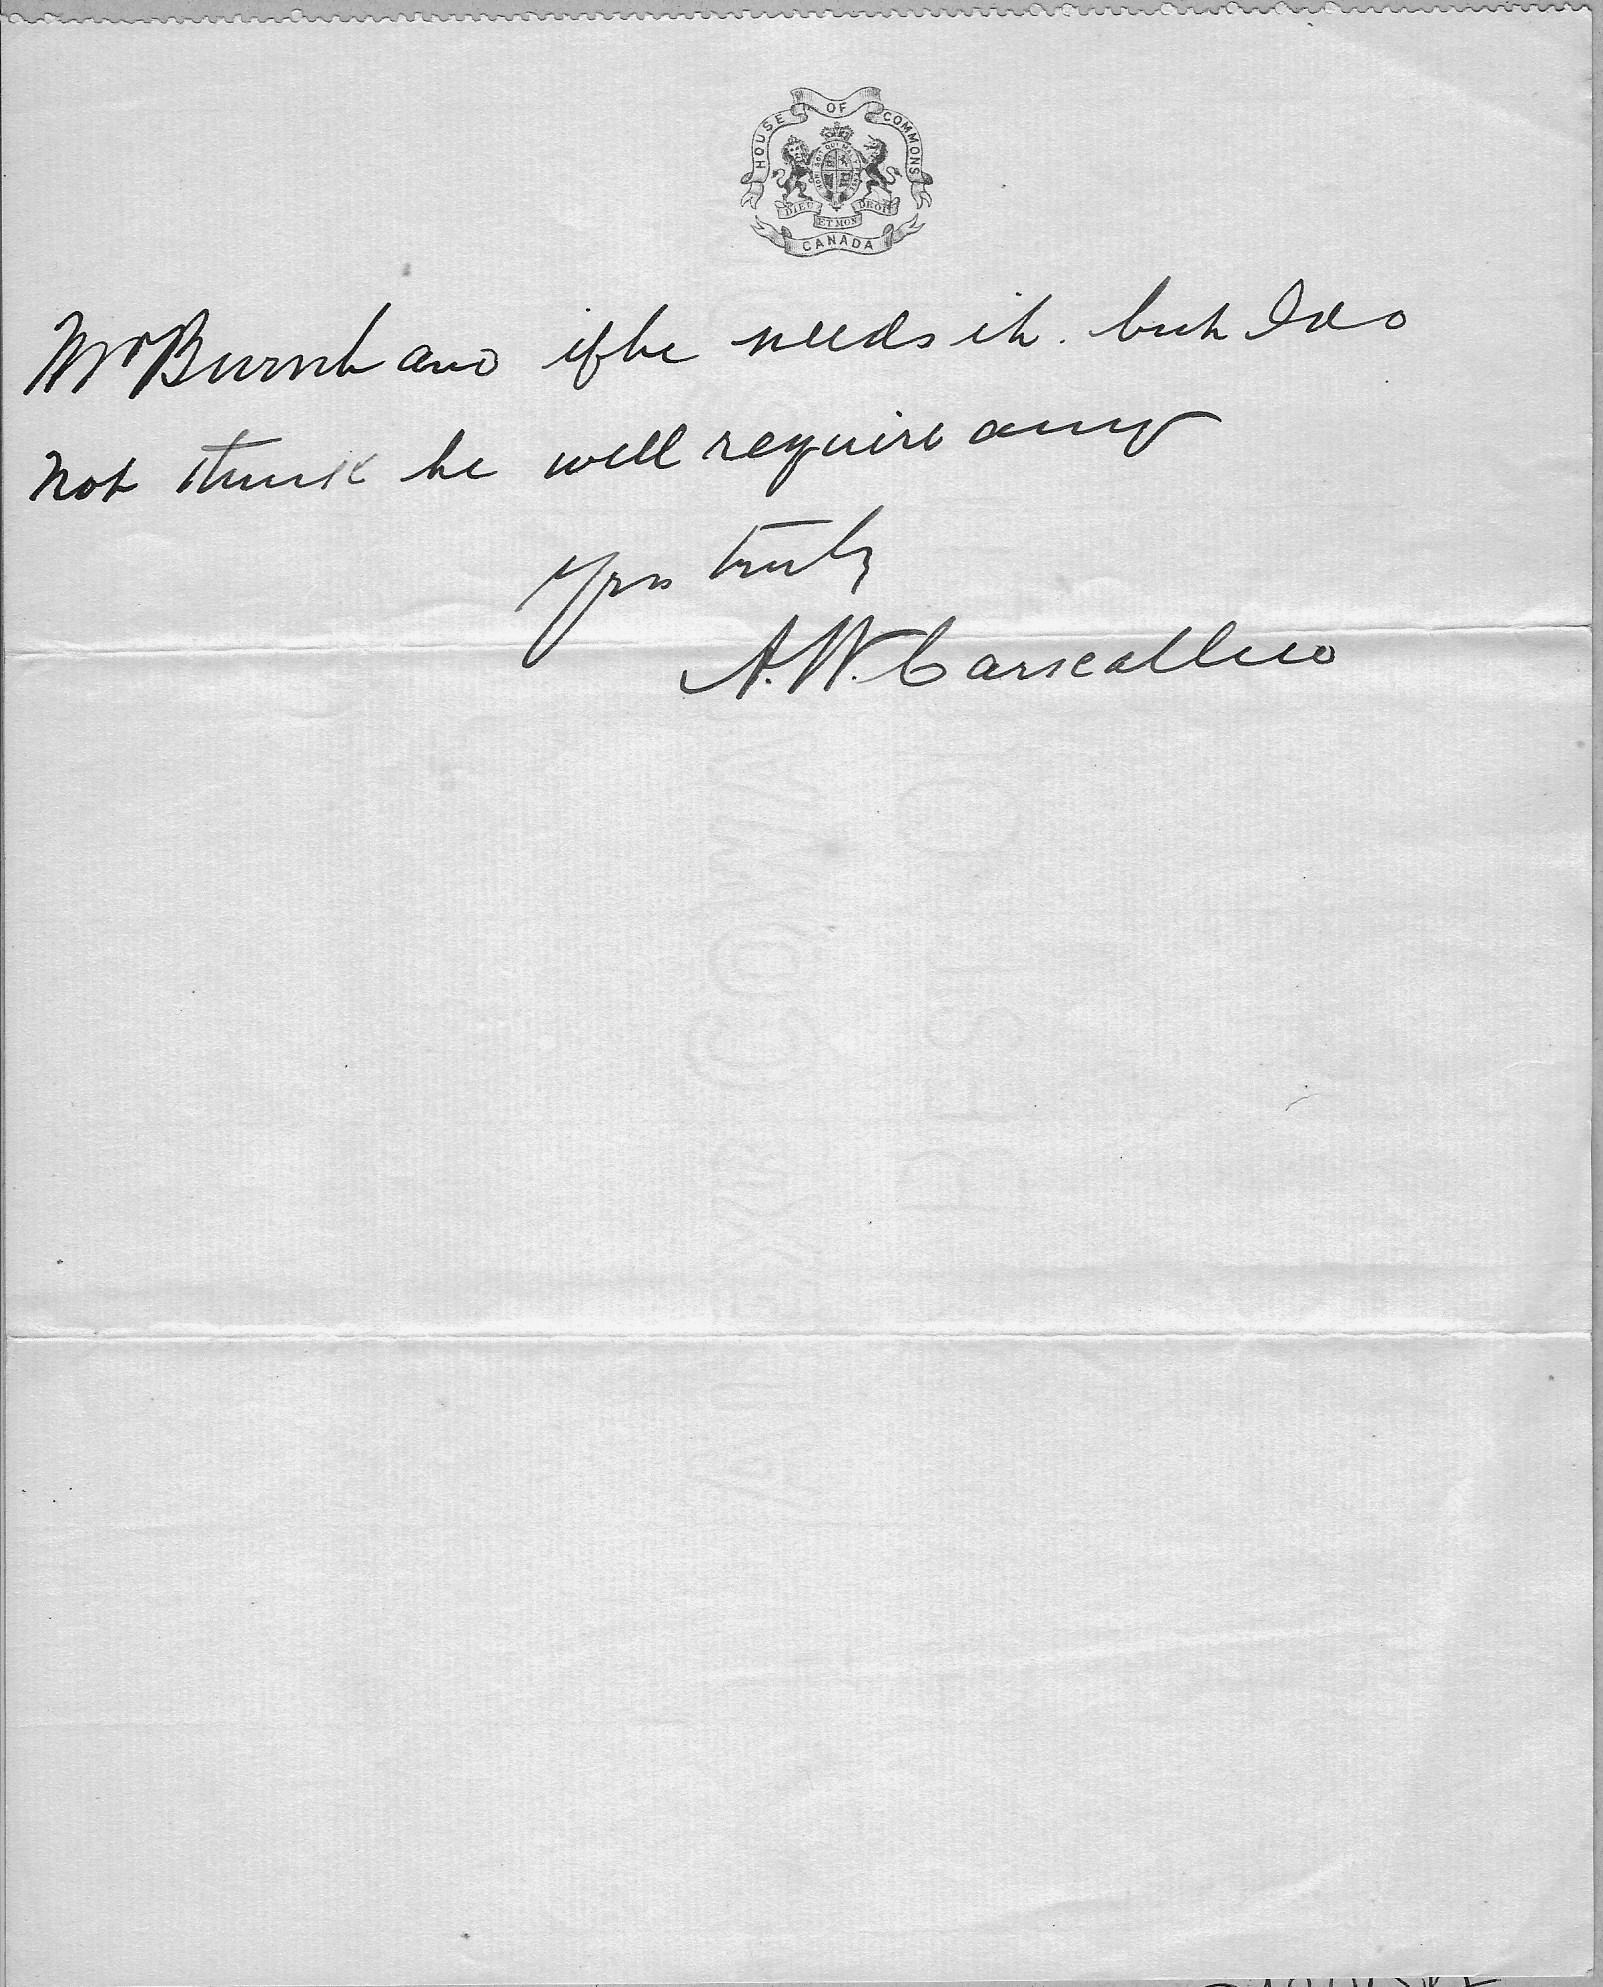 HOUSE OF COMMONS
HONI SOIT QUI MAL Y PENSE
DIEU ET MON DROIT
CANADA
Mr Burnham if he needs it. but I do
not think he will require any
Yrs truly
A. W. Carscallen